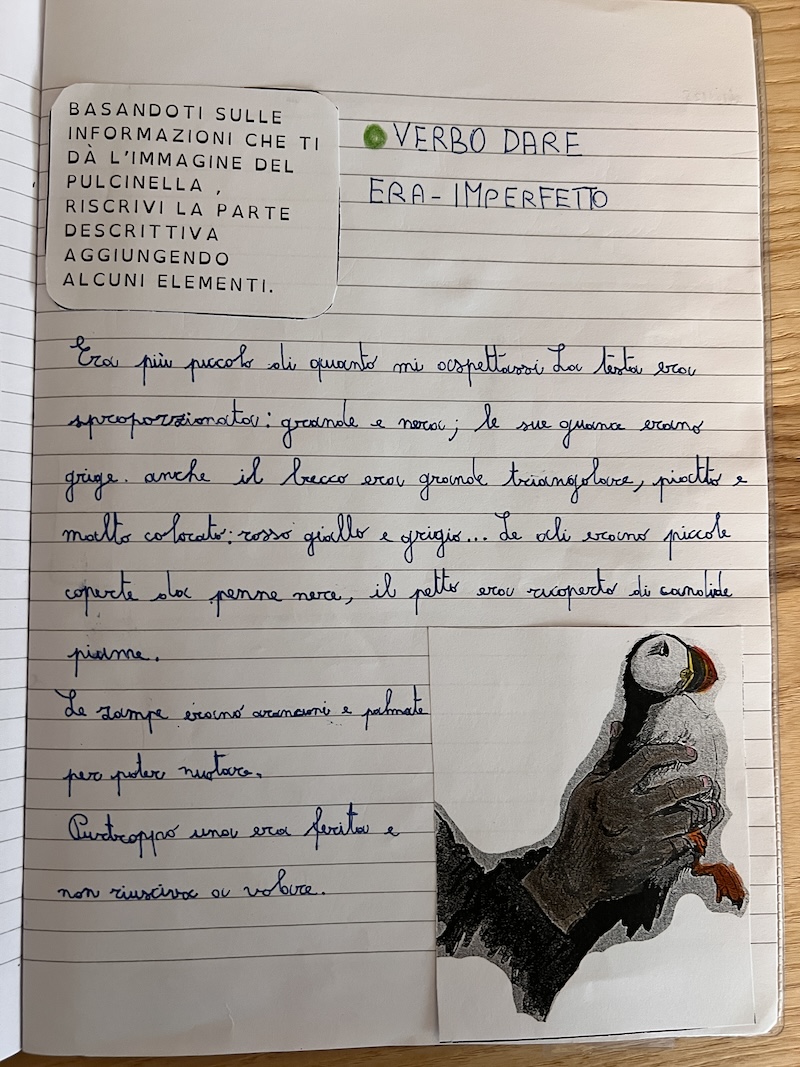 BASANDOTI SULLE
INFORMAZIONI CHE TI
DÀ L'IMMAGINE DEL
PULCINELLA ,
RISCRIVI LA PARTE
DESCRITTIVA
AGGIUNGENDO
ALCUNI ELEMENTI.
VERBO DARE
ERA-IMPERFETTO
Era più piccolo di quanto mi aspettassi La testa era
sproporzionata: grande e nera; le sue guance erano
grige. anche il becco era grande triangolare, piatto e
molto colorato: rosso giallo e grigio... Le ali erano piccole
coperte da penne nere, il petto era ricoperto di candide
piume.
Le zampe erano arancioni e palmate
per poter nuotare.
Purtroppo una era ferita e
non riusciva a volare.